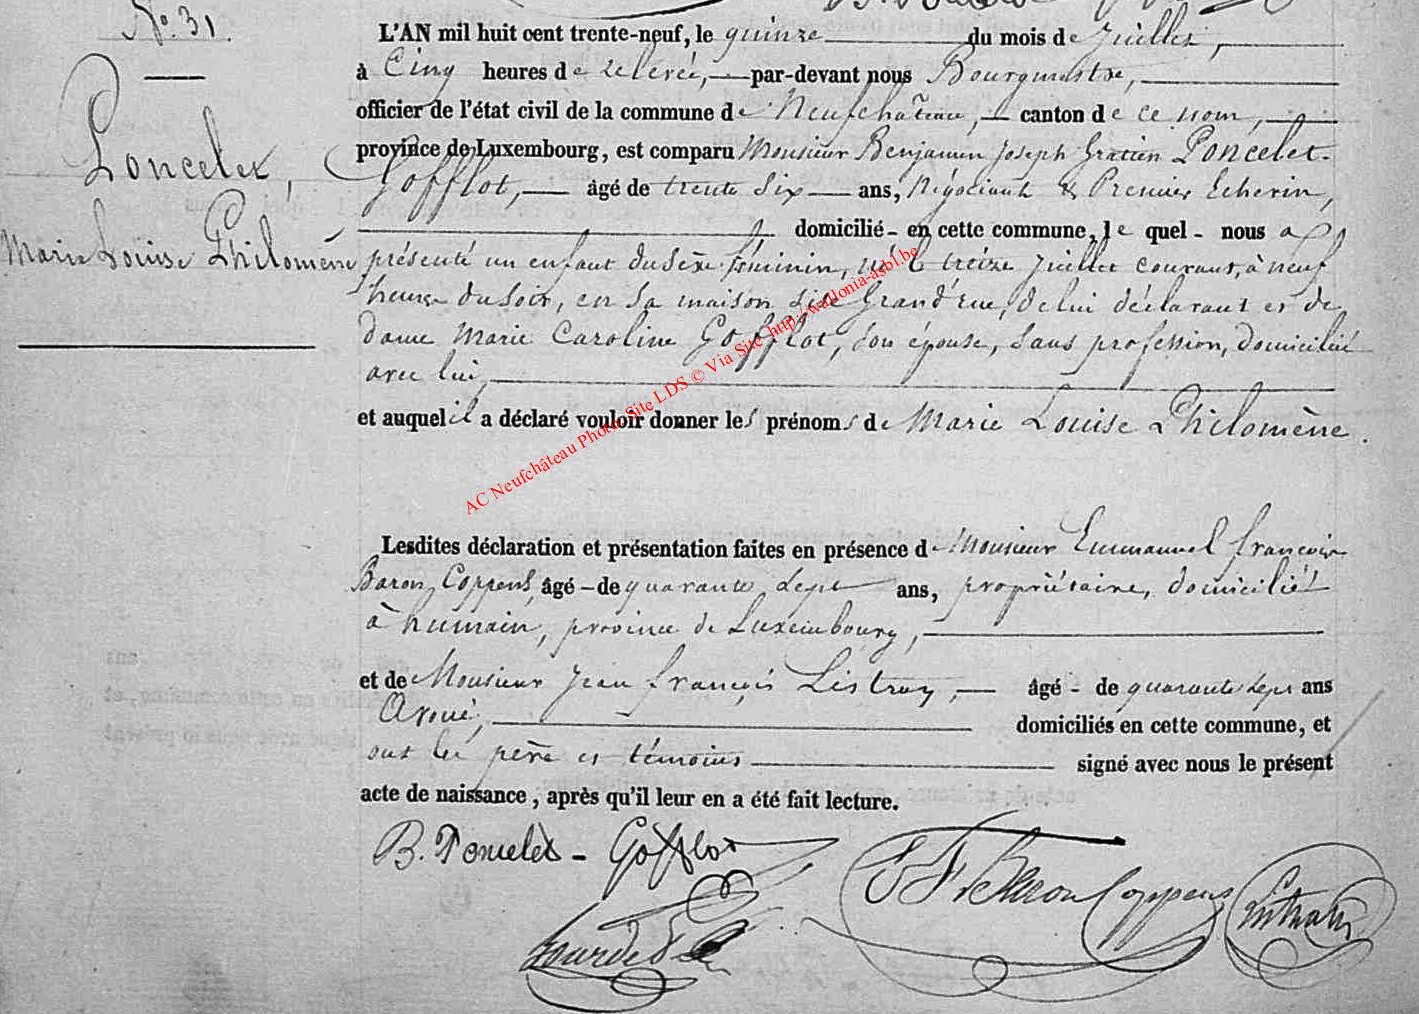 N.º 31.
Poncelet,
Marie Louise Philomène
L'AN mil huit cent trente-neuf, le quinze du mois de juillet,
à Cinq heures de relevée, par-devant nous Bourgmestre,
officier de l'état civil de la commune de Neufchâteau, canton de ce nom,
province de Luxembourg, est comparu Monsieur Benjamin Joseph Gratien Poncelet-
Gofflot, âgé de trente six ans, Négociant & Premier Echevin,
domicilié - en cette commune, le quel - nous a
présenté un enfant du sexe féminin, né le treize juillet courant, à neuf
heures du soir, en sa maison sise Grand'rue, de lui déclarant et de
dame Marie Caroline Gofflot, son épouse, sans profession, domiciliée
avec lui,
et auquel il a déclaré vouloir donner les prénoms de Marie Louise Philomène.
Lesdites déclaration et présentation faites en présence de Monsieur Emmanuel françois
Baron Coppens, âgé - de quarante sept ans, propriétaire, domicilié
à humain, province de Luxembourg,
et de Monsieur Jean françois Listray, âgé - de quarante sept ans
Avoué, domiciliés en cette commune, et
ont les père et témoins signé avec nous le présent
acte de naissance, après qu'il leur en a été fait lecture.
B. Poncelet - Gofflot
Baron Coppens
AC Neufchâteau Photo Site LDS © Via Site http://wallonia-asbl.be